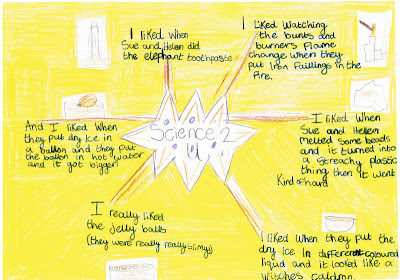 I liked When
Sue and Helen did
the elephant toothpaste
I Liked Watching
the bunts and
burners flame
change when they
put Iron faillings in the
fire.
And I liked When
they put dry Ice in
a ballon and they put
the ballon in hot water
and it got bigger!
Science 2
U
I liked When
Sue and Hellen
melted some beads
and it turned into
a streachy plastic
thing then it went
Kind of hard
I really liked
the Jelly balls
(they were really really slimy)
I liked When they put the
dry Ice In different coloured
liquid and it looked like a
Witches caldrun.